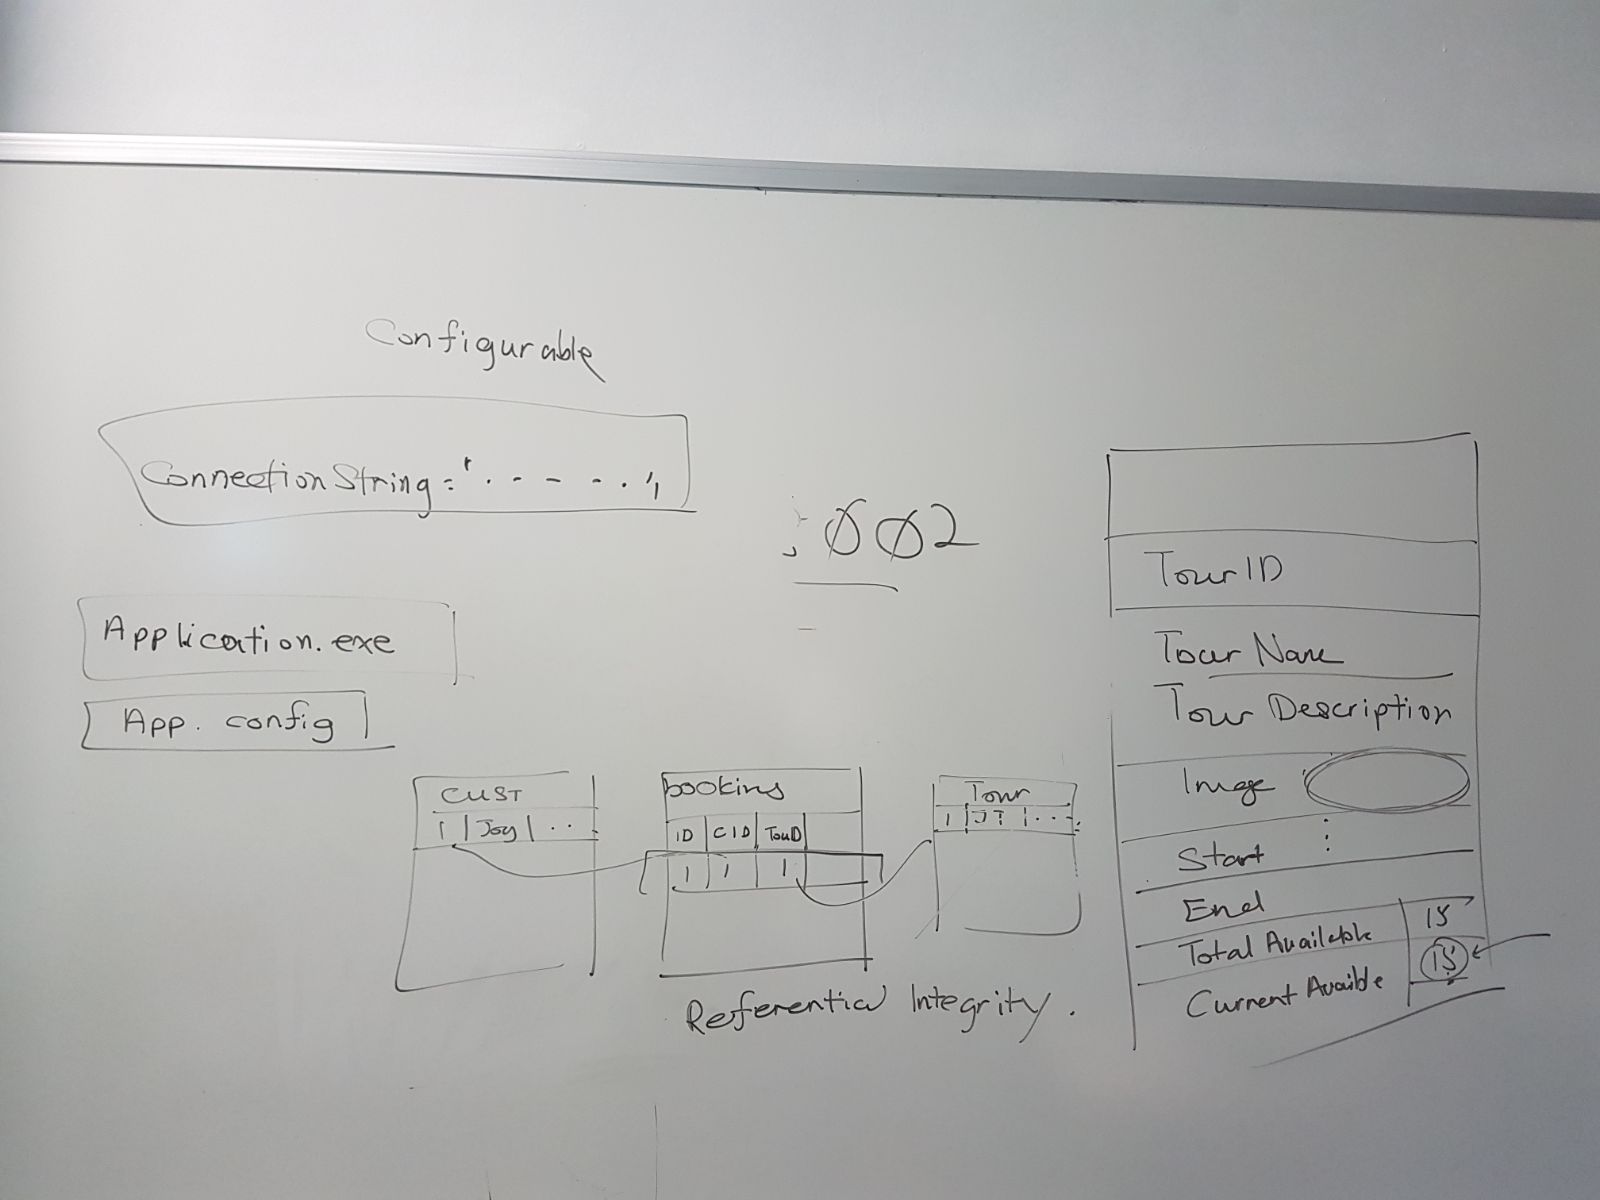 Configurable
ConnectionString = '. - - - . . ';
002
Application.exe
App. config
CUST
1 | Joy | ..
bookins
ID | CID | TouID
1 | 1 | 1
Tour
1 | JT | ...
Referential Integrity.
TourID
Tour Name
Tour Description
Image
Start
End
Total Available 15
Current Availble 15